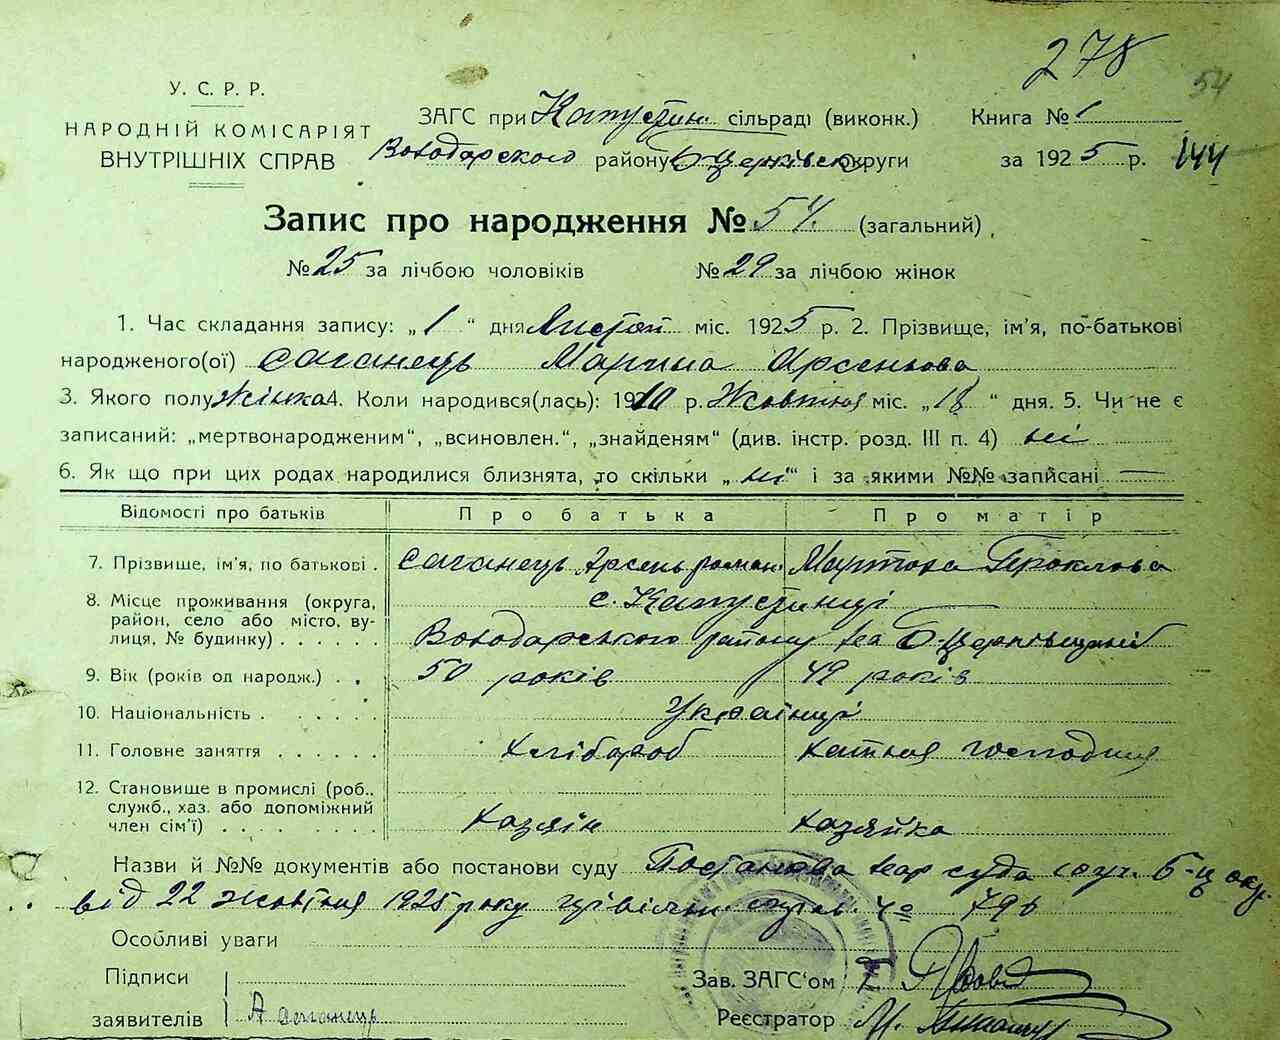 278
54
У. С. Р. Р.
НАРОДНІЙ КОМІСАРІЯТ
ВНУТРІШНІХ СПРАВ
ЗАГС при Капустин. сільраді (виконк.) Книга № 1
Володарского району Б Церківськ округи за 1925 р. 144
Запис про народження № 54. (загальний)
№ 25 за лічбою чоловіків № 29 за лічбою жінок
1. Час складання запису: „ 1 “ дня Листоп міс. 1925 р. 2. Прізвище, ім'я, по-батькові
народженого(ої) Саганець Марина Арсенькова
3. Якого полу Жінка 4. Коли народився(лась): 1910 р. Жовтня міс. „ 18 “ дня. 5. Чи не є
записаний: „мертвонародженим“, „всиновлен.“, „знайденям“ (див. інстр. розд. III п. 4) ні
6. Як що при цих родах народилися близнята, то скільки „ ні “ і за якими №№ записані —
Відомості про батьків Про батька Про матір
7. Прізвище, ім'я, по батькові . Саганець Арсень роман. Мартоха
8. Місце проживання (округа, с. Капустинці
район, село або місто, ву-
лиця, № будинку) . . . . . Володарського району на Б-Церківщині
9. Вік (років од народж.) . . 50 років 49 років
10. Національність . . . . . . Українці
11. Головне заняття . . . . . Хлібароб хатняя господиня
12. Становище в промислі (роб.,
служб., хаз. або допоміжний
член сім'ї) . . . . . . . . хазяїн хазяйка
Назви й №№ документів або постанови суду Постанова нар суда Б-Ц окр.
від 22 жовтня 1925 року цівільн. № 796
Особливі уваги
Підписи
заявителів А Саганець
Зав. ЗАГС'ом
Реєстратор М.